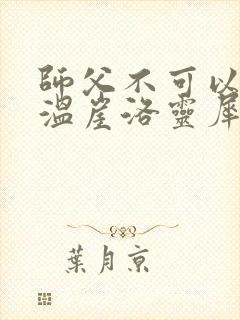 師父不可以
溫崖洛靈犀
葉月京